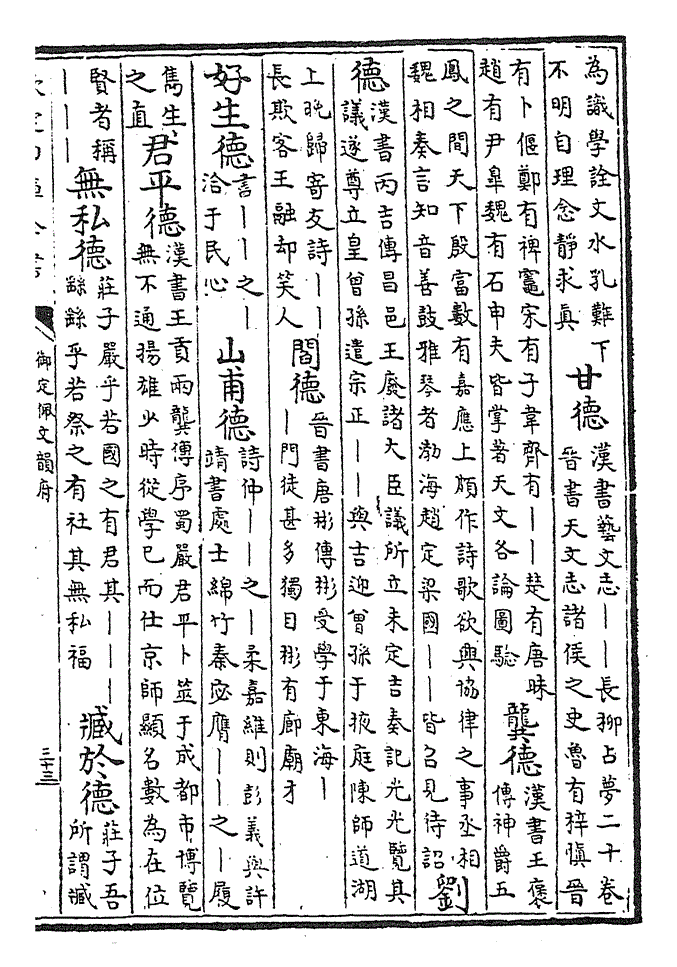 為識學詮文水孔難下
不明自理念靜求真
甘德
漢書藝文志——長柳占夢二十卷
晉書天文志諸侯之史魯有梓慎晉
有卜偃鄭有裨竈宋有子韋齊有——楚有唐昧
趙有尹臯魏有石申夫皆掌著天文各論圖驗
龔德
漢書王褒
傳神爵五
鳳之間天下殷富數有嘉應上頗作詩歌欲興協律之事丞相
魏相奏言知音善鼓雅琴者渤海趙定梁國——皆召見待詔
劉
德
漢書丙吉傳昌邑王廢諸大臣議所立未定吉奏記光光覽其
議遂尊立皇曾孫遣宗正——與吉迎曾孫于掖庭陳師道湖
上晚歸寄友詩——
長欺客王融却笑人
閻德
晉書唐彬傳彬受學于東海—
—門徒甚多獨目彬有廊廟才
好生德
書——之—
洽于民心
山甫德
詩仲——之—柔嘉維則彭羲與許
靖書處士綿竹秦宓膺——之—履
雋生
之直
君平德
漢書王貢兩龔傳序蜀嚴君平卜筮于成都市博覽
無不通揚雄少時從學已而仕京師顯名數為在位
賢者稱
———
無私德
莊子嚴乎若國之有君其———
繇繇乎若祭之有社其無私福
臧於德
莊子吾
所謂臧
御定佩文韻府
三十三